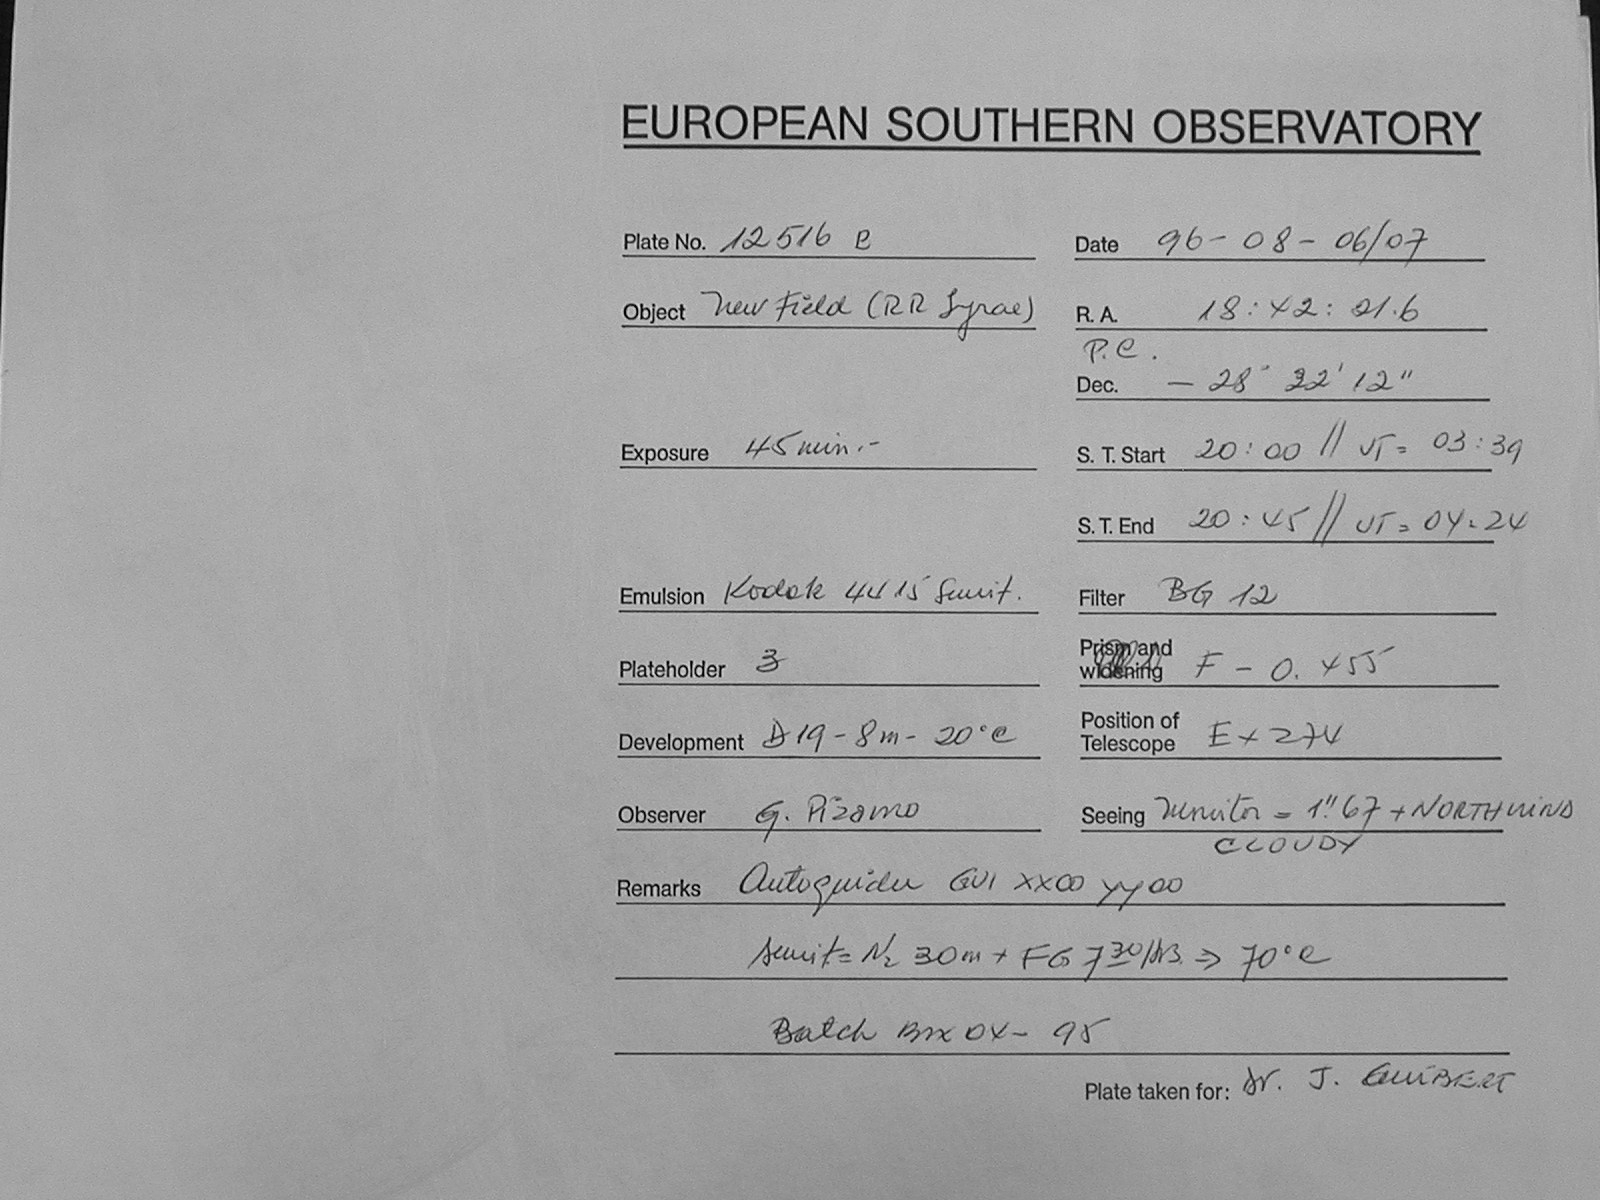 EUROPEAN SOUTHERN OBSERVATORY
Plate No. 12516 B Date 96-08-06/07
Object New Field (RR Lyrae) R. A. 18:42:01.6
P.C.
Dec. - 28° 22' 12"
Exposure 45 min.- S. T. Start 20:00 // UT= 03:39
S. T. End 20:45 // UT= 04:24
Emulsion Kodak 4415 Sensit. Filter BG 12
Plateholder 3 Prism and widening F - 0.455
Development D19-8m-20°C Position of Telescope E + 274
Observer G. Pizarro Seeing Monitor = 1".67 + NORTHWIND
CLOUDY
Remarks Autoguider GUI XX00 YY00
Sensit= N2 30m + FG 7 30/hrs. ⇒ 70°C
Batch Box 04-95
Plate taken for: Dr. J. GUIBERT